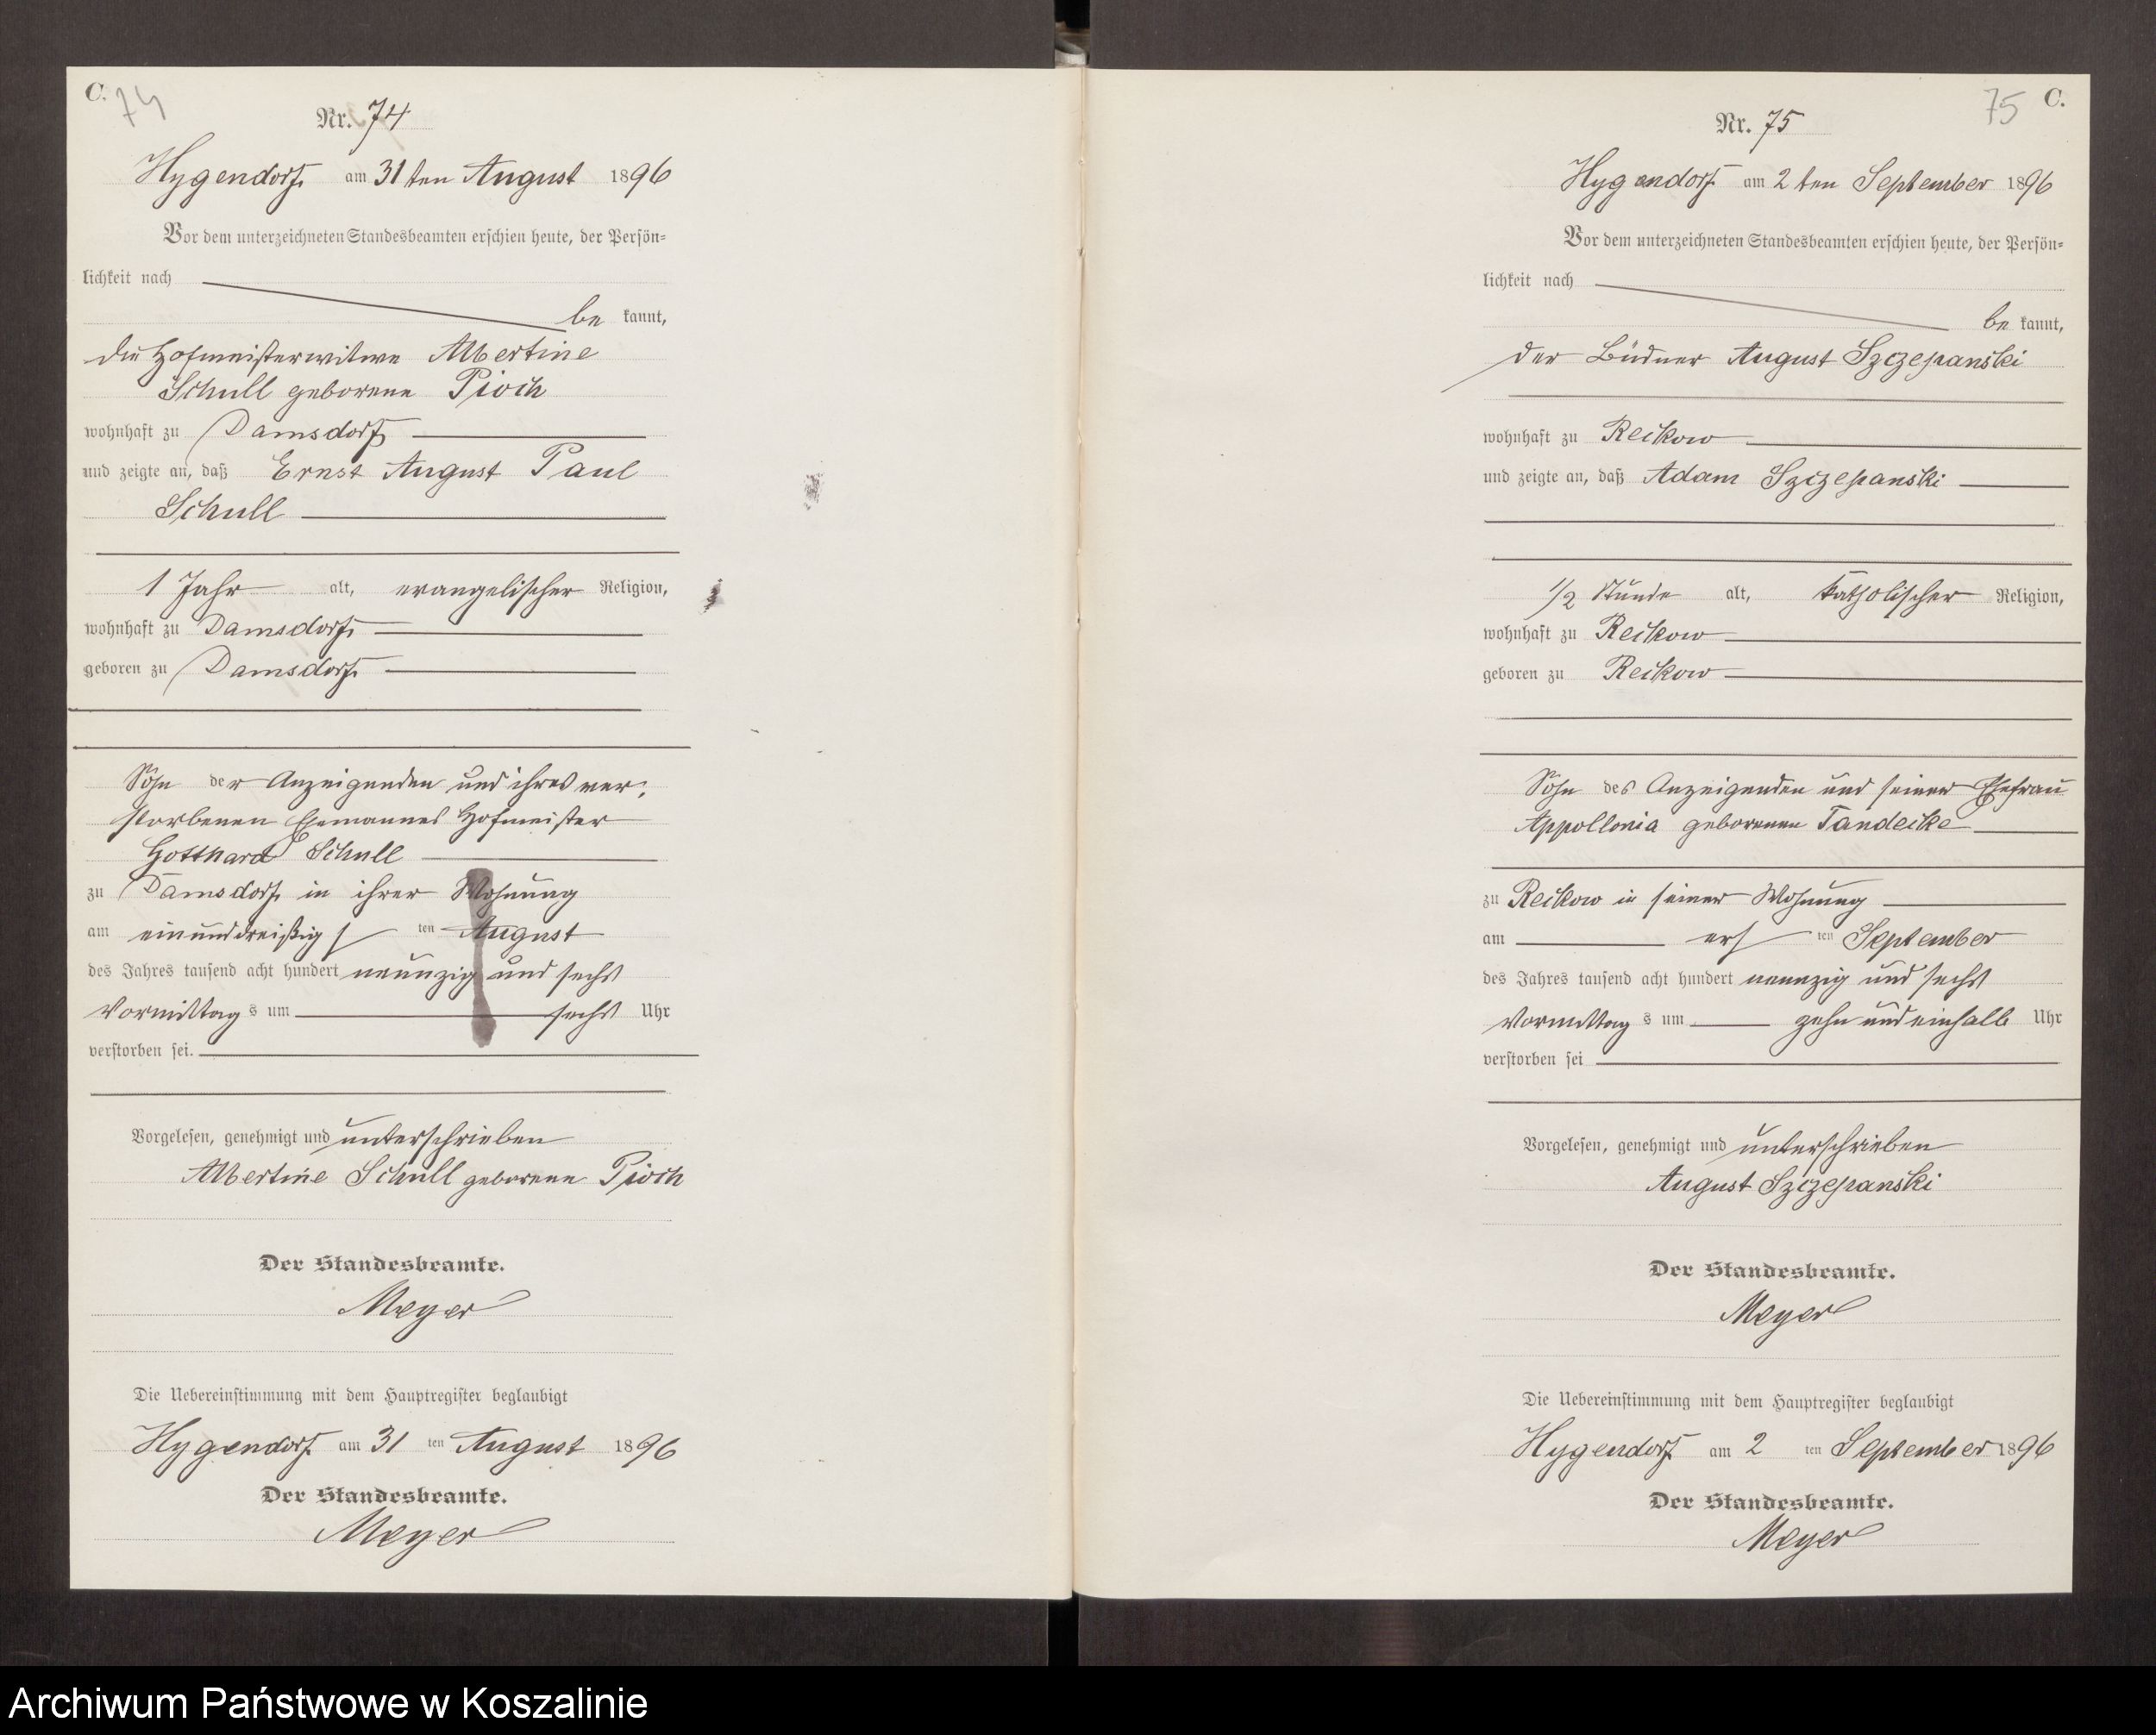 C. 74
Nr. 74
Hygendorf am 31ten August 1896
Vor dem unterzeichneten Standesbeamten erschien heute, der Persön-
lichkeit nach
be kannt,
die Hofmeisterwitwe Albertine
Schull geborene Pioch
wohnhaft zu Damsdorf
und zeigte an, daß Ernst August Paul
Schull
1 Jahr alt, evangelischer Religion,
wohnhaft zu Damsdorf
geboren zu Damsdorf
Sohn der Anzeigenden und ihres ver-
storbenen Ehemannes Hofmeister
Gotthard Schull
zu Damsdorf in ihrer Wohnung
am einunddreißigs ten August
des Jahres tausend acht hundert neunzig und sechs
Vormittag s um sechs Uhr
verstorben sei.
Vorgelesen, genehmigt und unterschrieben
Albertine Schull geborene Pioch
Der Standesbeamte.
Meyer
Die Uebereinstimmung mit dem Hauptregister beglaubigt
Hygendorf am 31 ten August 1896
Der Standesbeamte.
Meyer
75 C.
Nr. 75
Hygendorf am 2ten September 1896
Vor dem unterzeichneten Standesbeamten erschien heute, der Persön-
lichkeit nach
be kannt,
der Büdner August Szczepanski
wohnhaft zu Reckow
und zeigte an, daß Adam Szczepanski
1/2 Stunde alt, katholischer Religion,
wohnhaft zu Reckow
geboren zu Reckow
Sohn des Anzeigenden und seiner Ehefrau
Appollonia geborenen Tandecke
zu Reckow in seiner Wohnung
am ers ten September
des Jahres tausend acht hundert neunzig und sechs
Vormittag s um zehn und einhalb Uhr
verstorben sei
Vorgelesen, genehmigt und unterschrieben
August Szczepanski
Der Standesbeamte.
Meyer
Die Uebereinstimmung mit dem Hauptregister beglaubigt
Hygendorf am 2 ten September 1896
Der Standesbeamte.
Meyer
Archiwum Państwowe w Koszalinie